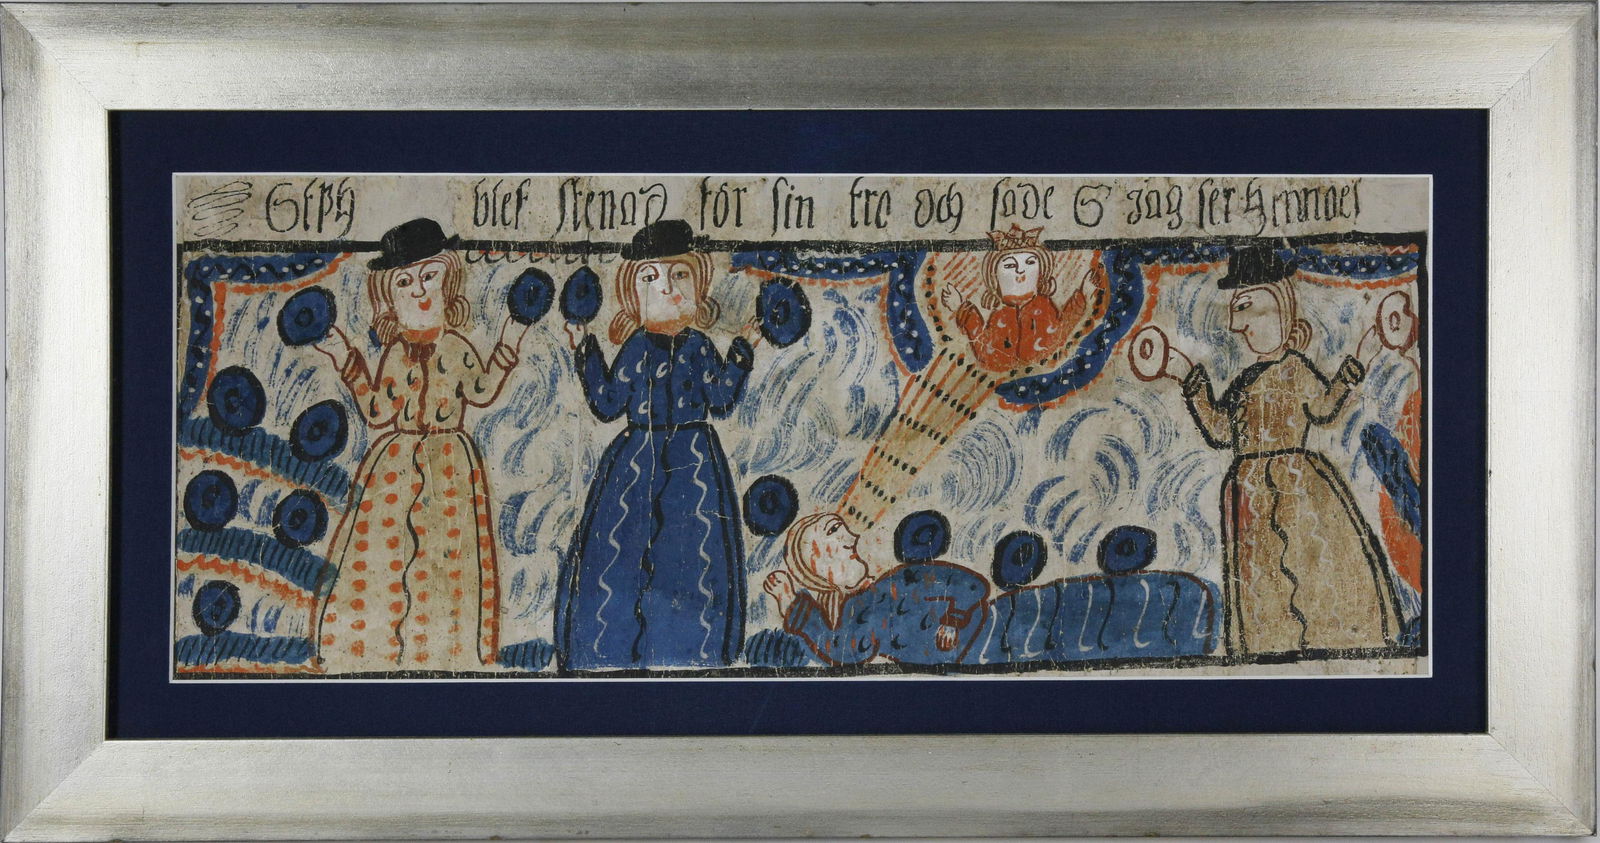 Stph blef stenad för sin tro och sade S Jag ser